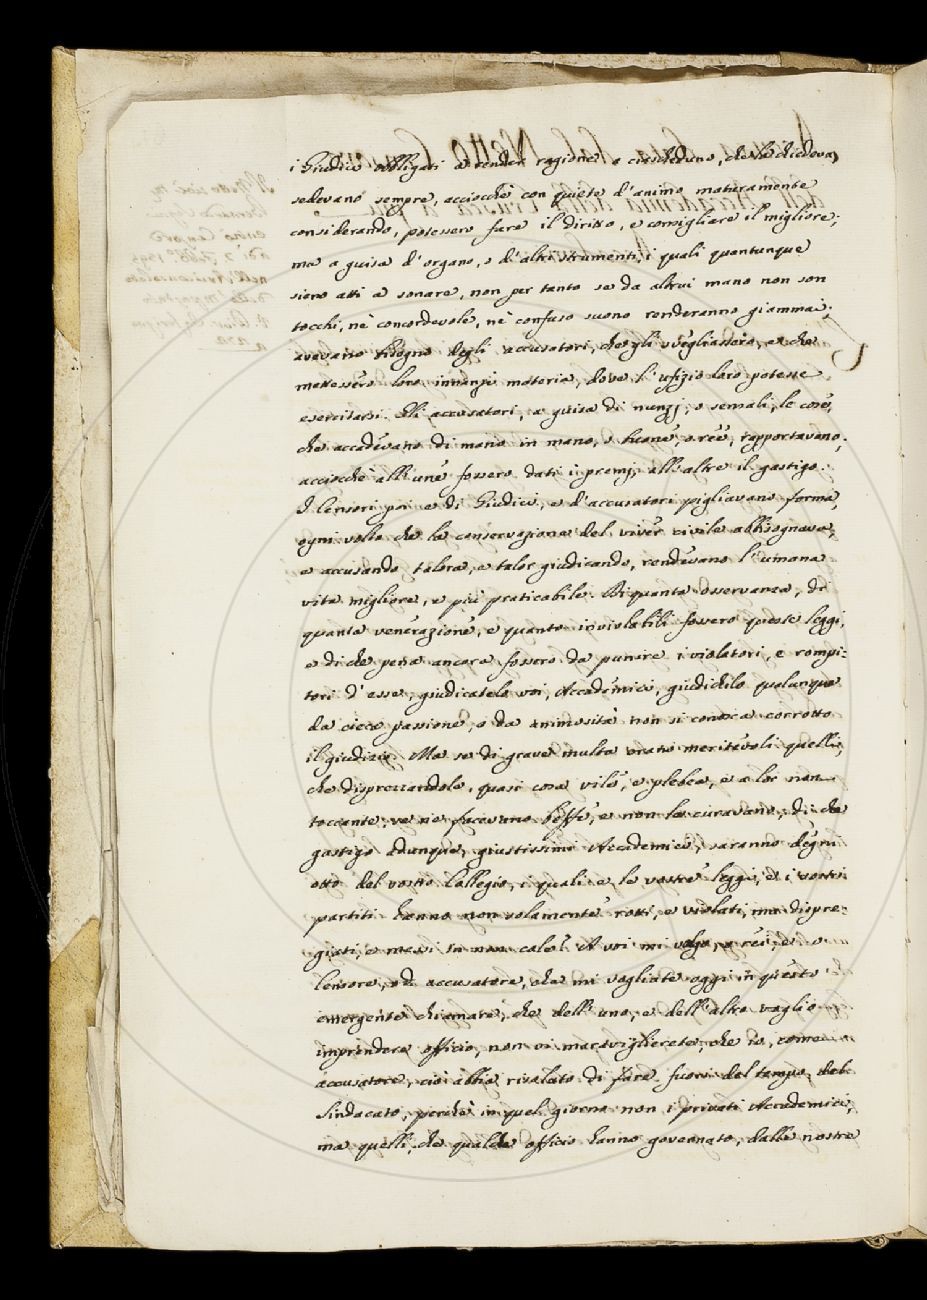 i Giudici obbligati a render ragione a ciascheduno, che la chiedeva,
sedevano sempre, acciochè con quiete d'animo maturamente
considerando, potessero fare il diritto, e consigliare il migliore;
ma a guisa d'organo, o d'altri strumenti, i quali quantunque
sieno atti a sonare, non per tanto se da altrui mano non son
tocchi, nè concordevole, nè confuso suono renderanno giammai;
avevano bisogno degli accusatori, che gli svegliassero, e che
mettessero loro innanzi materia, dove l'ufizio loro potesse
esercitarsi. Gli accusatori, a guisa di nunzj, o sensali, le cose,
che accadevano di mano in mano, o buone, o ree, rapportavano,
acciochè all'une fossero dati i premj, all'altre il gastigo.
I Censori poi e di Giudici, e d'accusatori pigliavano forma,
ogni volta che la conservazione del viver civile abbisognava,
e accusando talora, e talor giudicando, rendevano l'umana
vita migliore, e più praticabile. Di quanta osservanza, di
quanta venerazione, e quanto inviolabili fossero queste leggi,
e di che pena ancora fossero da punire i violatori, e rompi:
tori d'esse, giudicatelo voi, Accademici, giudichilo qualunque
da cieca passione, o da animosità non si conosca corrotto
il giudizio. Ma se di grave multa erano meritevoli quelli,
che disprezzandole, quasi cosa vile, e plebea, e a lor non
toccante, se ne facevano beffe, e non le curavano; di che
gastigo adunque, giustissimi Accademici, saranno degni
otto del vostro Collegio, i quali e le vostre leggi, e i vostri
partiti hanno non solamente rotti, e violati, ma dispre:
giati, e messi in non cale? A voi mi volgo, o rei, e o
Censore, od accusatore, che mi vogliate oggi in questo
emergente chiamare, che dell'uno, e dell'altro voglio
imprendere officio, non vi maraviglierete, che io, come
accusatore, ciò abbia risoluto di fare fuori del tempo del
Sindacato, perchè in quel giorno non i privati Accademici,
ma quelli, che qualche officio hanno governato, dalle nostre